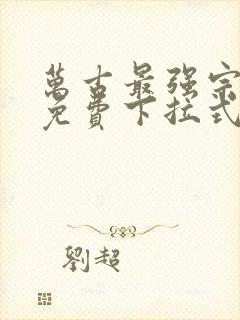 萬古最强宗
免費下拉式
劉超